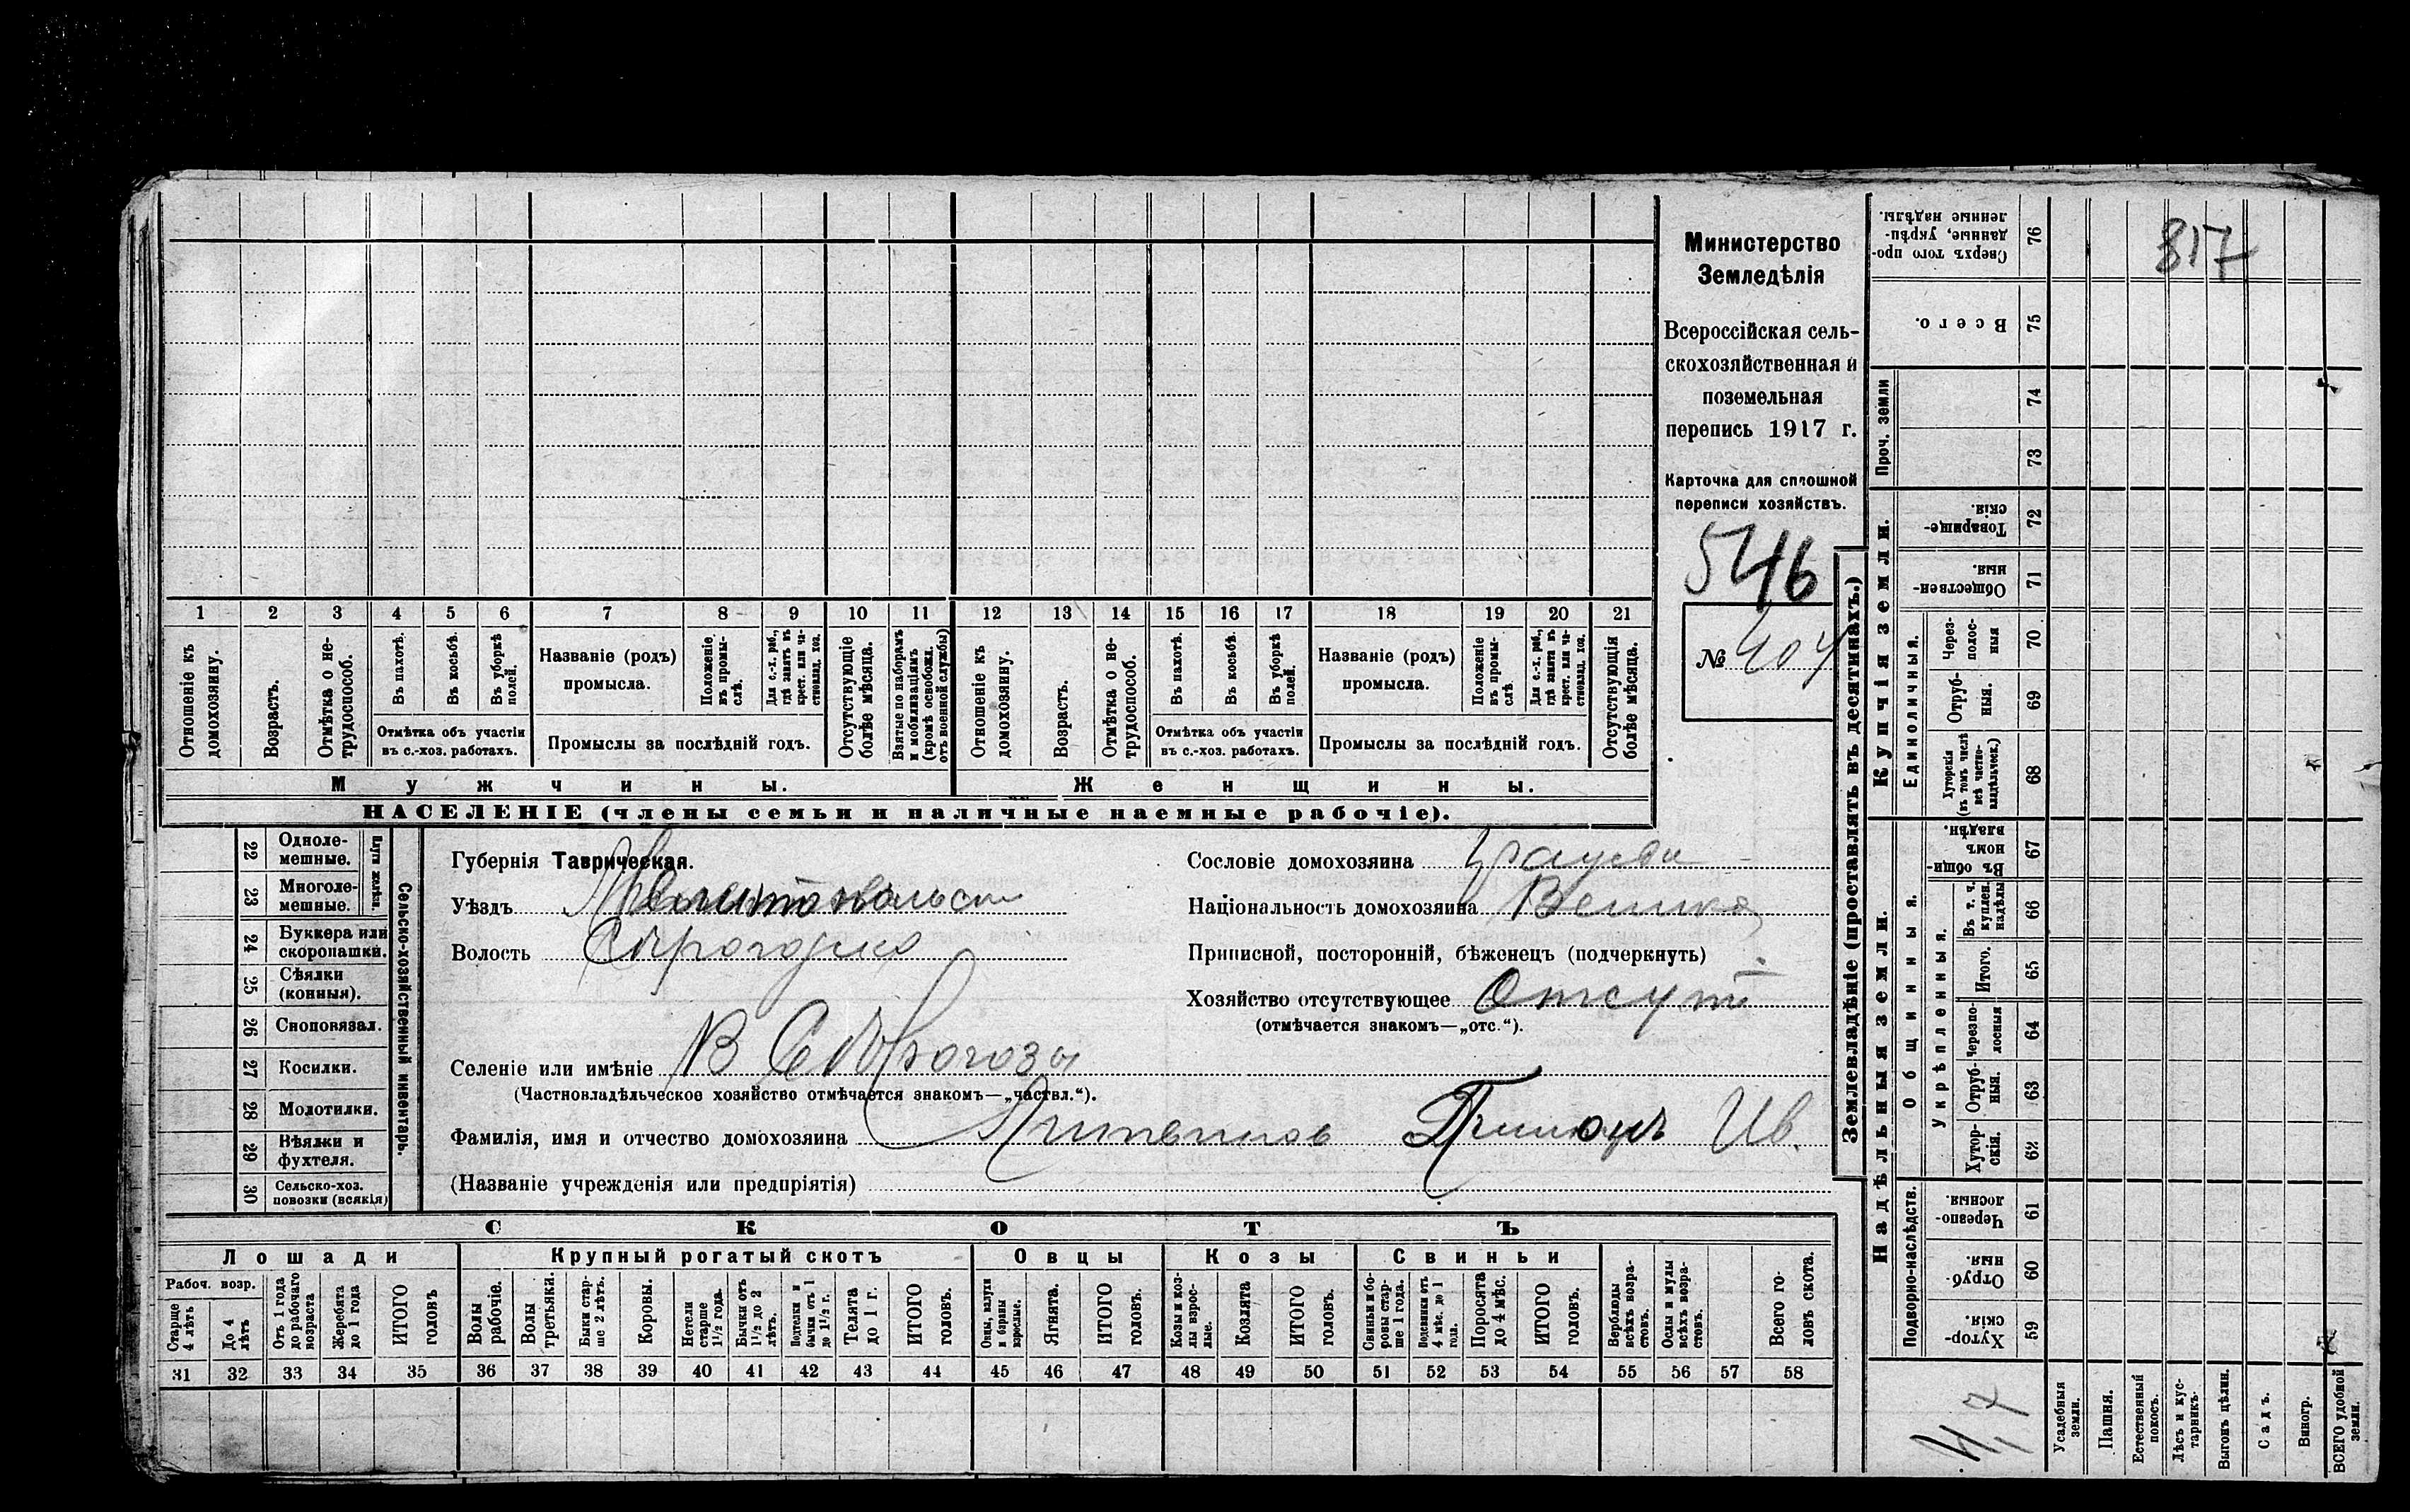 817
Министерство
Земледѣлія
Всероссійская сель-
скохозяйственная и
поземельная
перепись 1917 г.
Карточка для сплошной
переписи хозяйствъ.
546
№ 404
1 2 3 4 5 6 7 8 9 10 11 12 13 14 15 16 17 18 19 20 21
Отношеніе къ домохозяину.
Возрастъ.
Отмѣтка о не-трудоспособ.
Въ пахотѣ.
Въ косьбѣ.
Въ уборкѣ полей.
Отмѣтка объ участіи
въ с.-хоз. работахъ.
Названіе (родъ)
промысла.
Положеніе въ промы-слѣ.
Для с.-х. раб., гдѣ занятъ въ крест. или ча-стновлад. хоз.
Промыслы за послѣдній годъ.
Отсутствующіе болѣе мѣсяца.
Взятые по наборамъ и мобилизаціямъ (кромѣ освобожд. отъ военной службы)
Отношеніе къ домохозяину.
Возрастъ.
Отмѣтка о не-трудоспособ.
Въ пахотѣ.
Въ косьбѣ.
Въ уборкѣ полей.
Отмѣтка объ участіи
въ с.-хоз. работахъ.
Названіе (родъ)
промысла.
Положеніе въ промы-слѣ
Для с.-х. раб., гдѣ занята въ крест. или ча-стновлад. хоз.
Промыслы за послѣдній годъ.
Отсутствующія болѣе мѣсяца.
Мужчины.
Женщины.
НАСЕЛЕНІЕ (члены семьи и наличные наемные рабочіе).
22 Одноле-мешные.
23 Многоле-мешные.
Плуги желѣзн.
24 Буккера или скоропашки.
25 Сѣялки (конныя).
26 Сноповязал.
27 Косилки.
28 Молотилки.
29 Вѣялки и фухтеля.
30 Сельско-хоз. повозки (всякія)
Сельско-хозяйственный инвентарь.
Губернія Таврическая.
Уѣздъ Мелитопольск
Волость
Селеніе или имѣніе В
(Частновладѣльческое хозяйство отмѣчается знакомъ—„частвл.“).
Фамилія, имя и отчество домохозяина Ив.
(Названіе учрежденія или предпріятія)
Сословіе домохозяина
Національность домохозяина
Приписной, посторонній, бѣженец (подчеркнуть)
Хозяйство отсутствующее Отсут
(отмѣчается знакомъ—„отс.“).
СКОТЪ
Лошади
Крупный рогатый скотъ
Овцы
Козы
Свиньи
Рабоч. возр.
Старше 4 лѣтъ
До 4 лѣтъ
Отъ 1 года до рабочаго возраста
Жеребята до 1 года
ИТОГО головъ
Волы рабочіе.
Волы третьяки.
Быки стар-ше 2 лѣтъ.
Коровы.
Нетели старше 1½ года.
Бычки отъ 1½ до 2 лѣтъ.
Подтелки и бычки отъ 1 до 1½ г.
Телята до 1 г.
ИТОГО головъ.
Овцы, валухи и бараны взрослые.
Ягнята.
ИТОГО головъ.
Козы и коз-лы взрос-лые.
Козлята
ИТОГО головъ.
Свиньи и бо-ровы стар-ше 1 года.
Подсвинки отъ 4 мѣс. до 1 года.
Поросята до 4 мѣс.
ИТОГО головъ.
Верблюды всѣхъ возра-стовъ.
Ослы и мулы всѣхъ возра-стовъ.
Всего го-ловъ скота.
31 32 33 34 35 36 37 38 39 40 41 42 43 44 45 46 47 48 49 50 51 52 53 54 55 56 57 58
Землевладѣніе (проставлять въ десятинахъ.)
Сверхъ того про-данные, укрѣп-ленные надѣлы. 76
Всего. 75
Проч. земли 74 73
Купчія земли.
Товарище-скія. 72
Обществен-ныя. 71
Единоличныя.
Через-полос-ныя 70
Отруб-ныя. 69
Хуторскія (въ томъ числѣ всѣ частно-владѣльческ.) 68
Надѣльныя земли.
Общинныя.
Въ общи-номъ владѣн. 67
Укрѣпленныя.
Въ т. ч. куплен. надѣлы 66
Итого. 65
Черезпо-лосныя 64
Отруб-ныя. 63
Хутор-скія. 62
Подворно-наслѣдств.
Черезпо-лосныя. 61
Отруб-ныя. 60
Хутор-скія. 59
Усадебныя земли.
Пашня.
Естественный покосъ.
Лѣсъ и кус-тарникъ.
Выгонъ цѣлин.
Садъ.
Виногр.
ВСЕГО удобной земли.